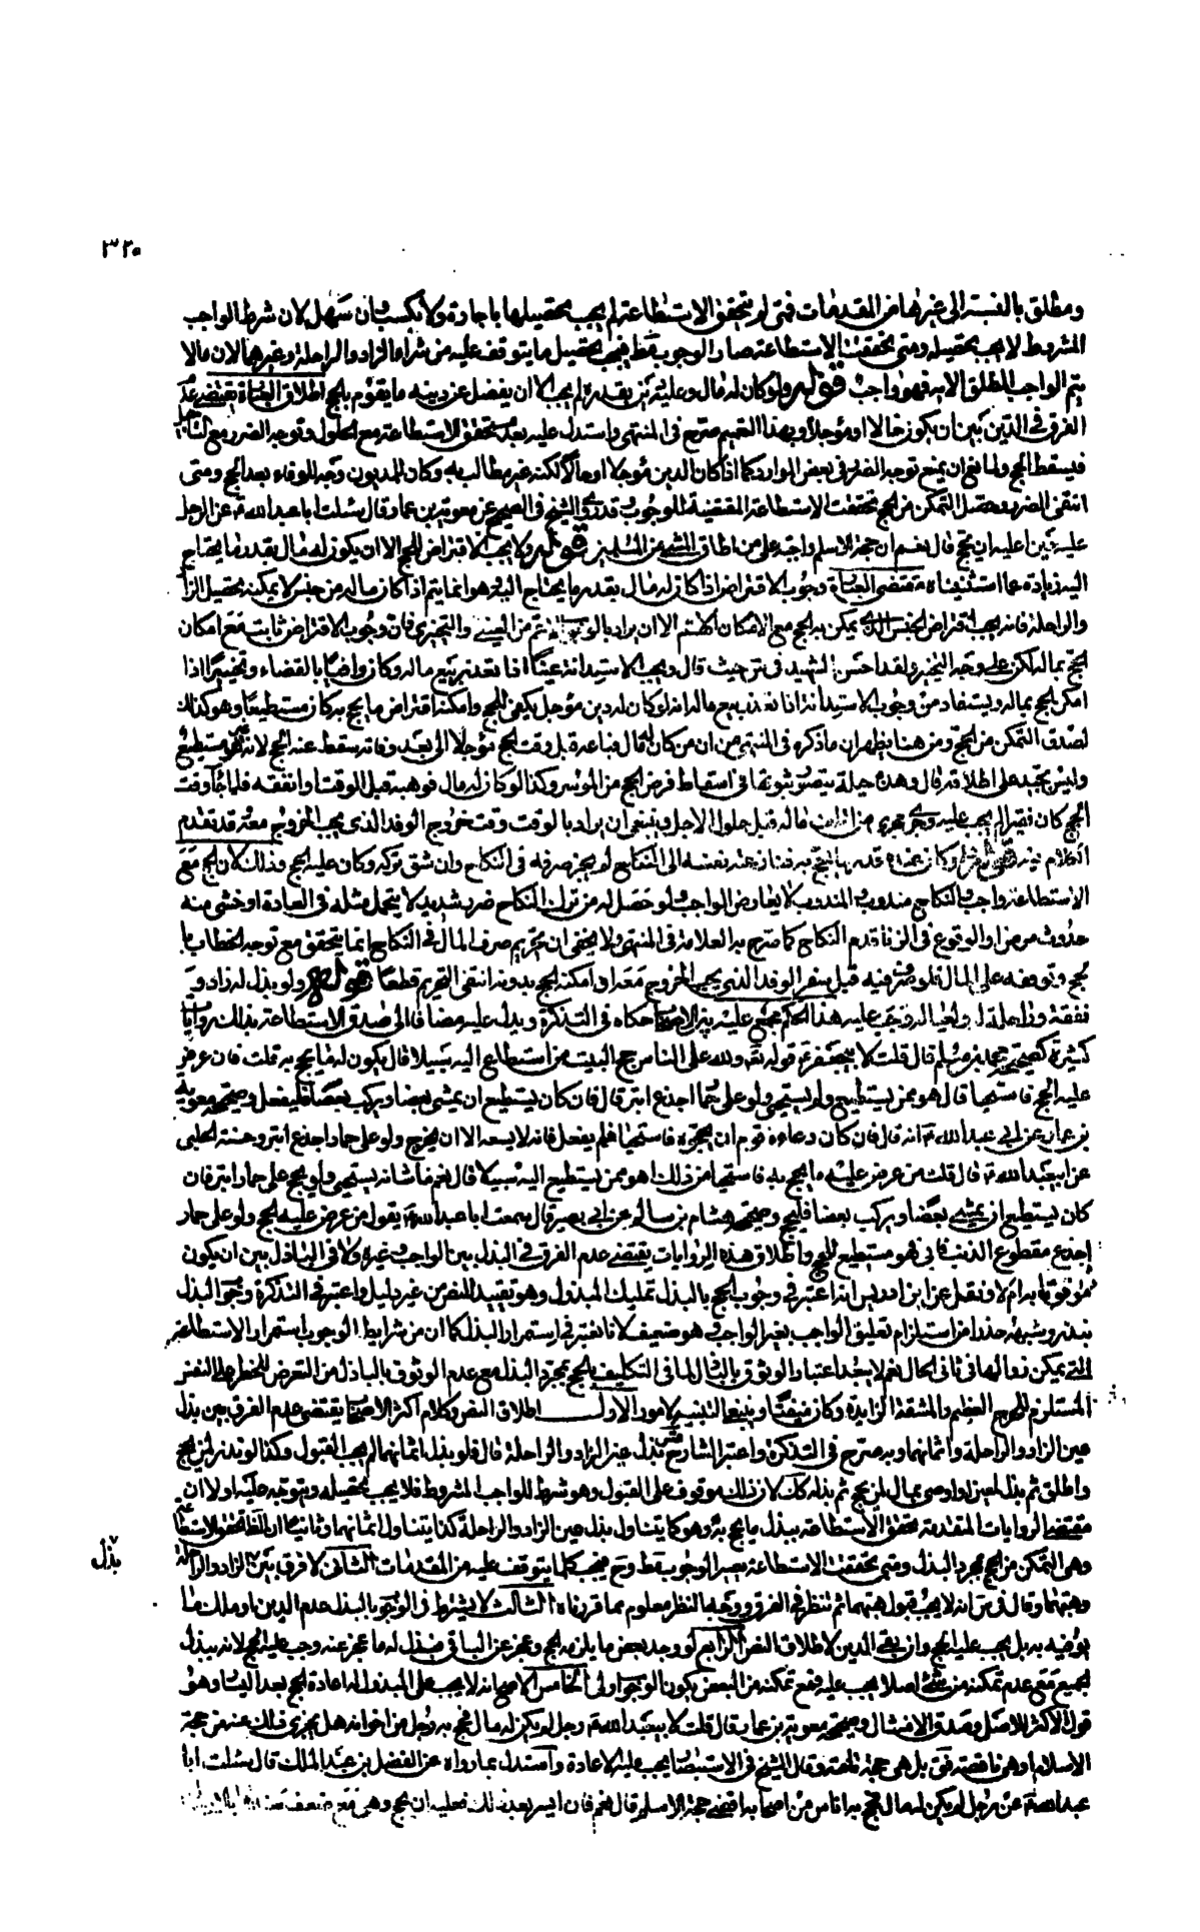 ٣٢٥
ومطلق بالنسبة الى غيرها من المقدمات فمتى لم يتحقق الاستطاعة لم يجب تحصيلها باجارة ولا تكسب وان سهل لان شرط الواجب
المشروط لا يجب تحصيله ومتى تحققت الاستطاعة صار الوجوب مطلقا فيجب تحصيل ما يتوقف عليه من شراء الزاد والراحلة وغيرهما لان ما لا
يتم الواجب المطلق الا به فهو واجب قوله ولو كان له مال وعليه دين بقدره لم يجب الا ان يفضل عن دينه ما يقوم بالحج اطلاق العبارة يقتضى عدم
الفرق فى الدين بين ان يكون حالا او مؤجلا وبهذا التعميم صرح فى المنتهى واستدل عليه بعدم تحقق الاستطاعة مع الحلول وتوجه الضرر مع التاجيل
فيسقط الحج ولمانع ان يمنع توجه الضرر فى بعض الموارد كما اذا كان الدين مؤجلا او حالا لكنه غير مطالب به وكان للمديون وجه للوفاء بعد الحج ومتى
انتفى الضرر وحصل التمكن من الحج تحققت الاستطاعة المقتضية للوجوب وقد روى الشيخ فى الصحيح عن معوية بن عمار قال سئلت ابا عبد الله ع عن الرجل
عليه دين اعليه ان يحج قال نعم ان حجة الاسلام واجبة على من اطاق المشى من المسلمين قوله ولا يجب الاقتراض للحج الا ان يكون له مال بقدر ما يحتاج
اليه زيادة عما استثنيناه مقتضى العبارة وجوب الاقتراض اذا كان له مال بقدر ما يحتاج اليه وهو انما يتم اذا كان ماله من جنس لا يمكنه تحصيل الزاد
والراحلة فانه يجب اقتراض الجنس الذى يمكن به الحج مع الامكان اللهم الا ان يراد بالوجوب الاعم من العينى والتخييرى فان وجوب الاقتراض ثابت مع امكان
الحج بماله لكن على وجه التخيير ولقد احسن الشهيد فى س حيث قال ويجب الاستدانة عينا اذا تعذر بيع ماله وكان وافيا بالقضاء وتخييرا اذا
امكن الحج بماله ويستفاد من وجوب الاستدانة اذا تعذر بيع ماله انه لو كان له دين مؤجل يكفى للحج وامكنه اقتراض ما يحج به كان مستطيعا وهو كذلك
لصدق التمكن من الحج ومن هنا يظهر ان ما ذكره فى المنتهى من ان من كان له مال فباعه قبل وقت الحج مؤجلا الى بعد فواته سقط عنه الحج لانه غير مستطيع
وليس بجيد على اطلاقه قال وهذه حيلة يتصور ثبوتها فى اسقاط فرض الحج من الموسر وكذا لو كان له مال فوهبه قبل الوقت او انفقه فلما جاء وقت
الحج كان فقيرا لم يجب عليه وجرى مجرى من اتلف ماله قبل حلول الاجل وينبغى ان يراد بالوقت وقت خروج الوفد الذى يجب الخروج معه قد تقدم
الكلام فيه قوله ولو كان معه قدر ما يحج به فنازعته نفسه الى النكاح لم يجز صرفه فى النكاح وان شق تركه وكان عليه الحج وذلك لان الحج مع
الاستطاعة واجب والنكاح مندوب والمندوب لا يعارض الواجب ولو حصل له من ترك النكاح ضرر شديد لا يتحمل مثله فى العادة او خشى منه
حدوث مرض او الوقوع فى الزنا قدم النكاح كما صرح به العلامة فى المنتهى ولا يخفى ان تحريم صرف المال فى النكاح انما يتحقق مع توجه الخطاب با
لحج وتوقفه على المال فلو صرفه فيه قبل سفر الوفد الذى يجب الخروج معه او امكنه الحج بدونه انتفى التحريم قطعا قوله ولو بذل له زاد و
نفقة وراحلة له ولعياله وجب عليه هذا الحكم مجمع عليه بين الاصحاب حكاه فى التذكرة ويدل عليه مضافا الى صدق الاستطاعة بذلك روايات
كثيرة كصحيحة محمد بن مسلم قال قلت لابى جعفر ع قوله تعالى ولله على الناس حج البيت من استطاع اليه سبيلا قال يكون له ما يحج به قلت فان عرض
عليه الحج فاستحيا قال هو ممن يستطيع ولم يستحيى ولو على حمار اجدع ابتر قال فان كان يستطيع ان يمشى بعضا ويركب بعضا فليفعل وصحيحة معوية
بن عمار عن ابى عبد الله ع انه قال فان كان دعاه قوم ان يحجوه فاستحيا فلم يفعل فانه لا يسعه الا ان يخرج ولو على حمار اجدع ابتر وحسنة الحلبى
عن ابى عبد الله ع قال قلت من عرض عليه ما يحج به فاستحيا من ذلك اهو ممن يستطيع اليه سبيلا قال نعم ما شانه يستحيى ولو يحج على حمار ابتر فان
كان يستطيع ان يمشى بعضا ويركب بعضا فليحج وصحيحة هشام بن سالم عن ابى بصير قال سمعت ابا عبد الله ع يقول من عرض عليه الحج ولو على حمار
اجدع مقطوع الذنب فابى فهو مستطيع للحج واطلاق هذه الروايات يقتضى عدم الفرق فى البذل بين الواجب وغيره ولا فى الباذل بين ان يكون
موثوقا به ام لا ونقل عن ابن ادريس انه اعتبر فى وجوب الحج بالبذل تمليك المبذول وهو تقييد للنص من غير دليل واعتبر فى التذكرة وجوب البذل
بنذر وشبهه حذرا من استلزام تعليق الواجب بغير الواجب وهو ضعيف لانا نعتبر فى استمرار الوجوب استمرار البذل كما ان من شرايط الوجوب استمرار الاستطاعة
التى يمكن زوالها فى ثانى الحال نعم لا يبعد اعتبار الوثوق بالباذل لما فى التكليف بالحج بمجرد البذل مع عدم الوثوق بالباذل من التعرض للخطر على النفس
المستلزم للحرج العظيم والمشقة الزايدة وكان منفيا وينبغى التنبيه لامور الاول اطلاق النص وكلام اكثر الاصحاب يقتضى عدم الفرق بين بذل
عين الزاد والراحلة واثمانهما وبه صرح فى التذكرة واعتبر الشارح قدس سره بذل عين الزاد والراحلة قال فلو بذل اثمانهما لم يجب القبول وكذا لو نذر لمن يحج
واطلق ثم بذل لمعين او اوصى بمال لمن يحج ثم بذله كك لان ذلك موقوف على القبول وهو شرط للواجب المشروط فلا يجب تحصيله ويتوجه عليه اولا ان
مقتضى الروايات المتقدمة تحقق الاستطاعة ببذل ما يحج به وهو كما يتناول بذل عين الزاد والراحلة كذا يتناول اثمانهما وثانيا ان الظاهر تحقق الاستطاعة
وهى التمكن من الحج بمجرد البذل ومتى تحققت الاستطاعة يصير الوجوب مطلقا وح فيجب كلما يتوقف عليه من المقدمات الثانى لا فرق بين بذل الزاد والراحلة
وهبتهما وقال فى س انه لا يجب قبول هبتهما ثم تنظر فى الفرق ووجه النظر معلوم مما قررناه الثالث لا يشترط فى الوجوب بالبذل عدم الدين او ملك ما
يوفيه به بل يجب عليه الحج وان بقى الدين لاطلاق النص الرابع لو وجد بعض ما يلزمه للحج وعجز عن الباقى فبذل له ما عجز عنه وجب عليه الحج لانه ببذل
الجميع مع عدم تمكنه من شئ اصلا يجب عليه فمع تمكنه من البعض يكون الوجوب اولى الخامس الاصح انه لا يجب على المبذول له اعادة الحج بعد اليسار وهو
قول الاكثر للاصل وصدق الامتثال وصحيحة معوية بن عمار قال قلت لابى عبد الله ع رجل لم يكن له مال فحج به رجل من اخوانه هل يجزى ذلك عنه من حجة
الاسلام او هى ناقصة قال بل هى حجة تامة وقال الشيخ فى الاستبصار يجب عليه الاعادة واستدل بما رواه عن الفضل بن عبد الملك قال سئلت ابا
عبد الله ع عن رجل لم يكن له مال فحج به اناس من اصحابه اقضى حجة الاسلام قال نعم فان ايسر بعد ذلك فعليه ان يحج وهى مع ضعف
بذل